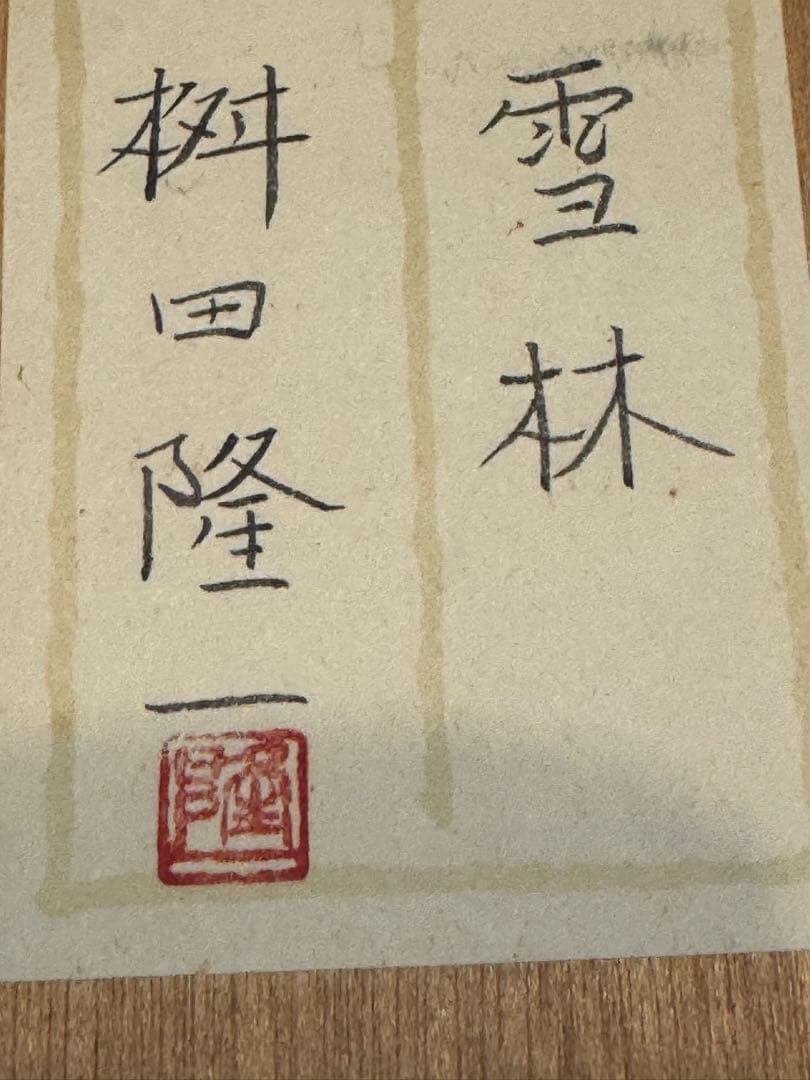 雪林
桝田隆一
隆一